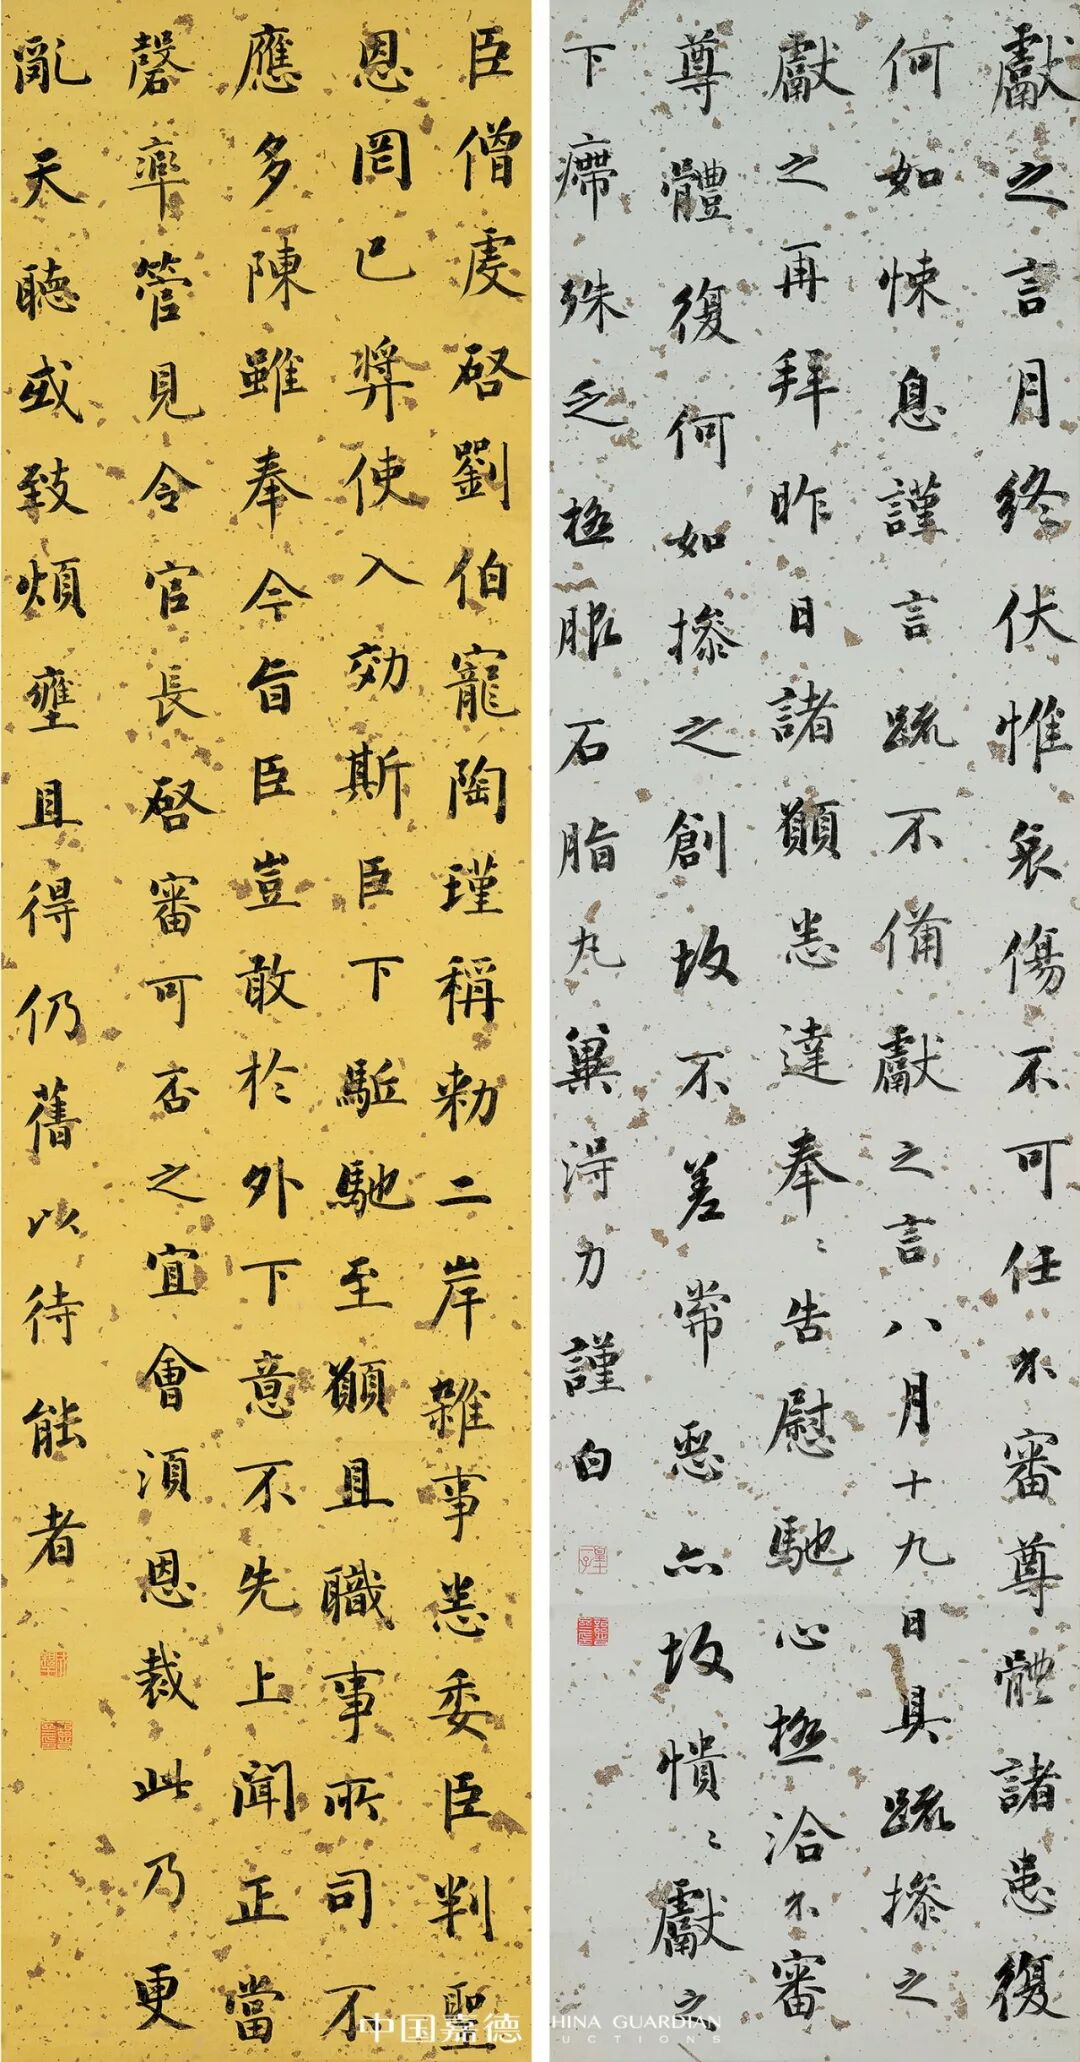 獻之言月終伏惟哀傷不可任不審尊體諸患復
何如悚息謹言疏不備獻之言八月十九日具疏操之
獻之再拜昨日諸願悉達奉〻告慰馳心極洽不審
尊體復何如操之創故不差常惡亦故憒〻獻之
下㿃殊乏極服石脂丸冀得力謹白
臣僧虔啓劉伯寵陶瑾稱勑二岸雜事悉委臣判聖
恩罔已獎使入効斯臣下駈馳至願且職事所司不
應多陳雖奉今旨臣豈敢於外下意不先上聞正當
罄率管見令官長啓審可否之宜會須恩裁此乃更
亂天聽或致煩壅且得仍舊以待能者
中国嘉德 CHINA GUARDIAN AUCTIONS